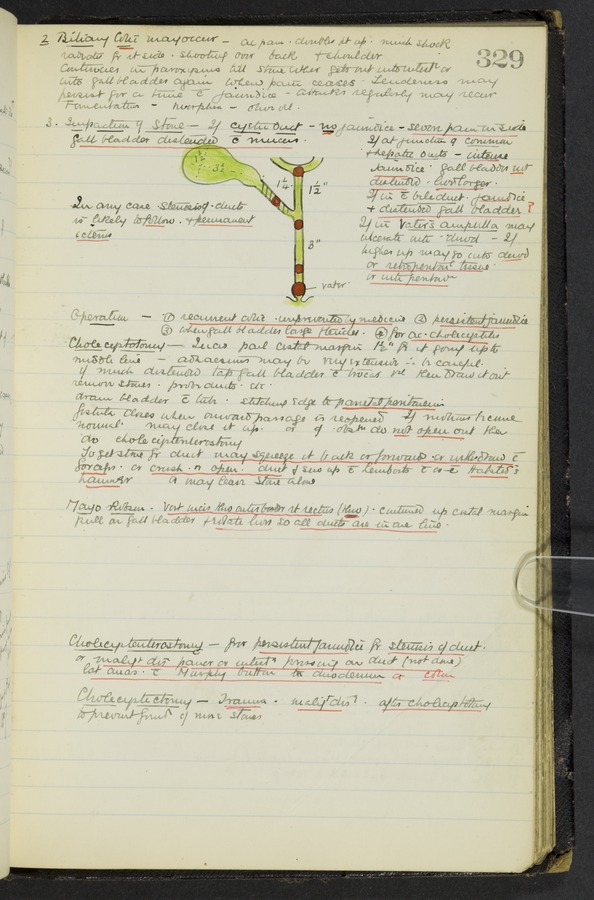 329
2 Biliary Colic may occur – ac pain · doubles pt up · much shock
radiates fr rt side · shooting over back + shoulder
Continues in paroxysms till stone either gets out into intestⁿ or
into gall bladder again when pain ceases · Tenderness may
persist for a time c̄ jaundice – attacks regularly may recur
Fomentation – morphia – olive oil.
3. Impaction of Stone – If cystic duct – no jaundice – severe pain in side
gall bladder distended c̄ mucus.
If at junction of common
+ hepatic ducts – intense
jaundice · gall bladder not
distended · liver larger.
If in c̄ bile duct · jaundice
+ distended gall bladder ?
If in Vater's ampulla may
ulcerate into duod – If
higher up may go into duod
or retroperitonl tissue
or into peritonm
In any case stenosis of ducts
is likely to follow · + permanent
icterus
1¼
1½"
3"
vater
Operation – ① recurrent colic · unprevented by medicine ② persistent jaundice
③ when gall bladder large + tender. ④ for ac · cholecystitis
Cholecystotomy – Incis paral costal margin 1½" fr it going up to
middle line – adhesions may be very extensive ∴ be careful.
if much distended tap gall bladder c̄ trocar then draw it out
remove stones · probe ducts · etc ·
drain bladder c̄ tube · stitching edge to parietal peritoneum
fistula closes when onward passage is reopened If motions become
normal · may close it up. or if obstn do not open out then
do cholecystenterostomy
To get stone fr duct may squeeze it back or forward or withdraw c̄
forceps · or crush · or open duct & sew up c̄ Lemberts c̄ or c̄ Halsted's
hammer or may leave stone alone
Mayo Robson · Vert incis thro outer border rt rectus (thro) · continued up costal margin
pull on gall bladder + rotate liver so all ducts are in one line ·
Cholecystenterostomy – for persistent jaundice fr stenosis of duct.
or maligt dis pancr or pressing on duct (not done)
lat anas · c̄ Murphy button to duodenum or colon
Cholecystectomy – Trauma · maligt dist · after cholecystotomy
to prevent formn of more stones